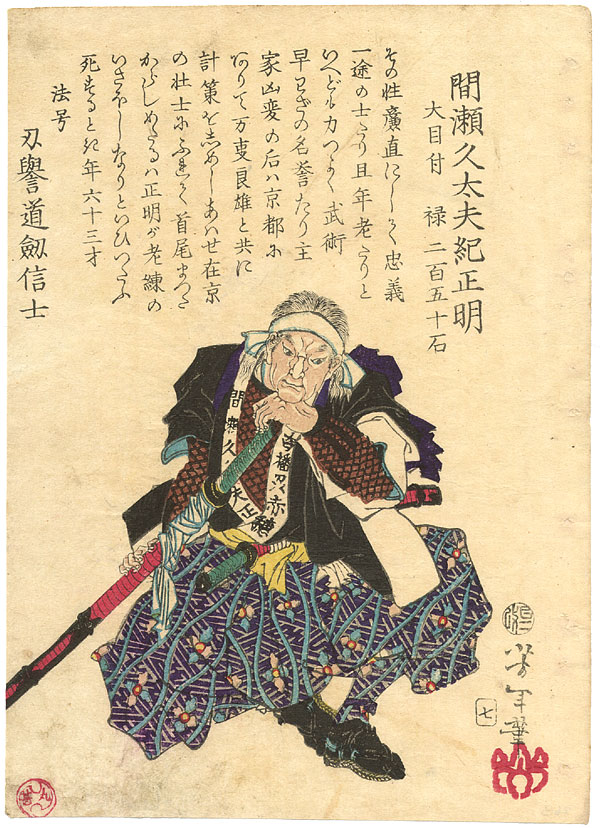 間瀬久太夫紀正明
大目付　禄二百五十石
その性廣直にして忠義
一途の士たり且年老たりと
いへども力つよく武術
早わざの名誉たり主
家凶変の后ハ京都に
ありて万事良雄と共に
計策を志めしあはせ在京
の壮士に
首尾まつたく
ハ正明が老練の
いさほしなりといひつたふ
死するとき年六十三才
法号
刃譽道劔信士
間瀬久
夫正
芳年筆
七